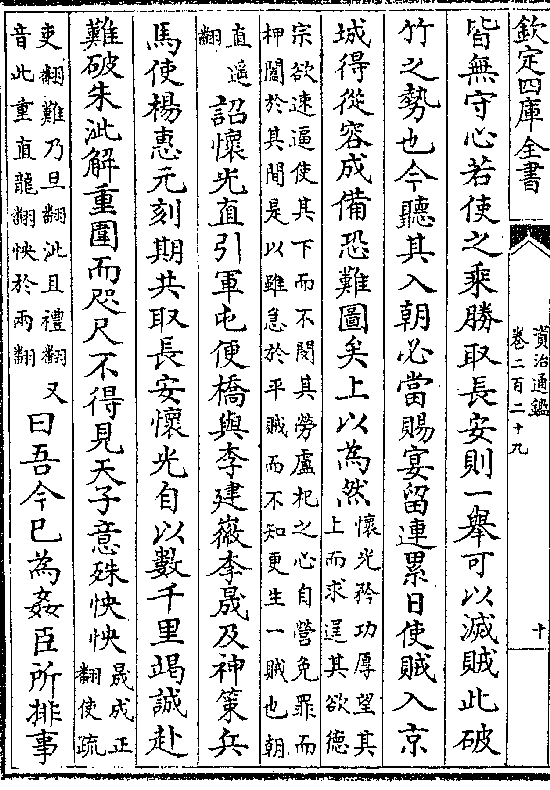 欽定四庫全書
資治通鑑
卷二百二十九
十
皆無守心若使之乘勝取長安則一舉可以滅賊此破
竹之勢也今聽其入朝必當賜宴留連累日使賊入京
城得從容成備恐難圖矣上以為然
懷光矜功厚望其
上而求逞其欲德
宗欲速逼使其下而不閔其勞盧杞之心自營免罪而
押闔於其間是以雖急於平賊而不知更生一賊也朝
直遥
翻
詔懷光直引軍屯便橋與李建徽李晟及神策兵
馬使楊惠元刻期共取長安懷光自以數千里竭誠赴
難破朱泚解重圍而咫尺不得見天子意殊怏怏
晟成正
翻使疏
吏翻難乃旦翻泚且禮翻
音此重直龍翻怏於兩翻
又
曰吾今已為姦臣所排事